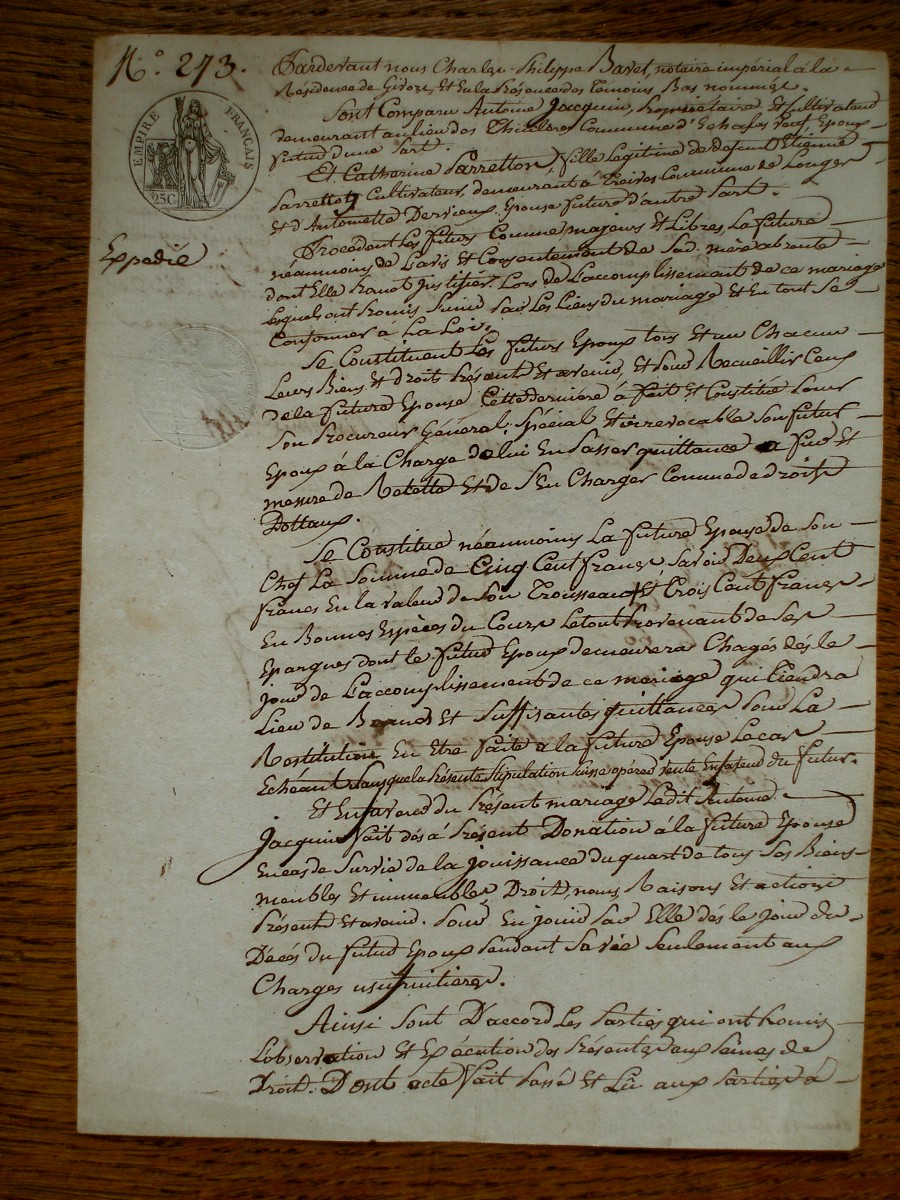 N.º 273.
EMPIRE FRANÇAIS
25C
Expedié
Pardevant nous Charles Philippe Bavet, notaire imperial à la
Résidence de Givors, Et En la Présence des Temoins Bas nommés.
Sont Comparu Antoine Jacquin, Propriétaire Et Cultivateur
demeurant au lieu des Commune d'Echalas veuf, Epoux
futur d'une Part.
Et Catharine Sarretton, fille Legitime de defunt Etienne
Sarretton Cultivateur, demeurant à Treives Commune de Longes
et d'Antoinette Dervieux, Epouse future d'autre Part.
Procedant Les futurs Comme majeurs et Libres, La future
néaumoins de L'avis Et Consentement de Sad. mère absente
dont Elle Promet justifier Lors de L'accomplissement de ce mariage
Lesquels ont Promis S'unir par Les Liens du mariage Et En tout Se
Conformer à La Loi.
Se Constituent Les futurs Epoux tous Et un Chacun
Leurs Biens Et droits Présent Et avenir, Et Pour Recueillir Ceux
de la future Epouse Cette derniere à fait Et Constitué Pour
Son Procureur Général, Spécial Et irrevocable Son futur
Epoux à la Charge de lui En Passer quittance a fur Et
mesure de Recette Et de S'En Charger Comme de droits
Dottaux.
Se Constitue néaumoins La future Epouse de Son
Chef La Somme de Cinq Cent francs Savoir Deux Cent
francs En la valeur de Son Trousseau, Et Trois Cent francs
En Bonnes Espèces du Cours Le tout Provenant de Ses
Epargnes dont le futur Epoux demeurera Chargés dès le
jour de L'accomplissement de ce mariage qui tiendra
Lieu de Bonnes Et Suffisantes quittances Pour La
Restitution En Etre faite à la future Epouse Le cas
Echéant Sans que la Présente Stipulation Puisse opérer vente En faveur du futur.
Et En faveur du Présent mariage Ledit Antoine
Jacquin fait dès à Présent Donation à la future Epouse
En cas de Survie de la jouissance du quart de tous Ses Biens
meubles Et immeubles, Droit, noms, Raisons Et actions
Présent Et avenir. Pour En jouir Par Elle dès le jour du
Décés du futur Epoux Pendant Sa vie Seulement aux
Charges usufruitieres.
Ainsi Sont D'accord Les Parties qui ont Promis
L'observation Et Exécution des Présentes aux Peines de
Droit. Dont acte fait Passé Et Lû aux Parties à